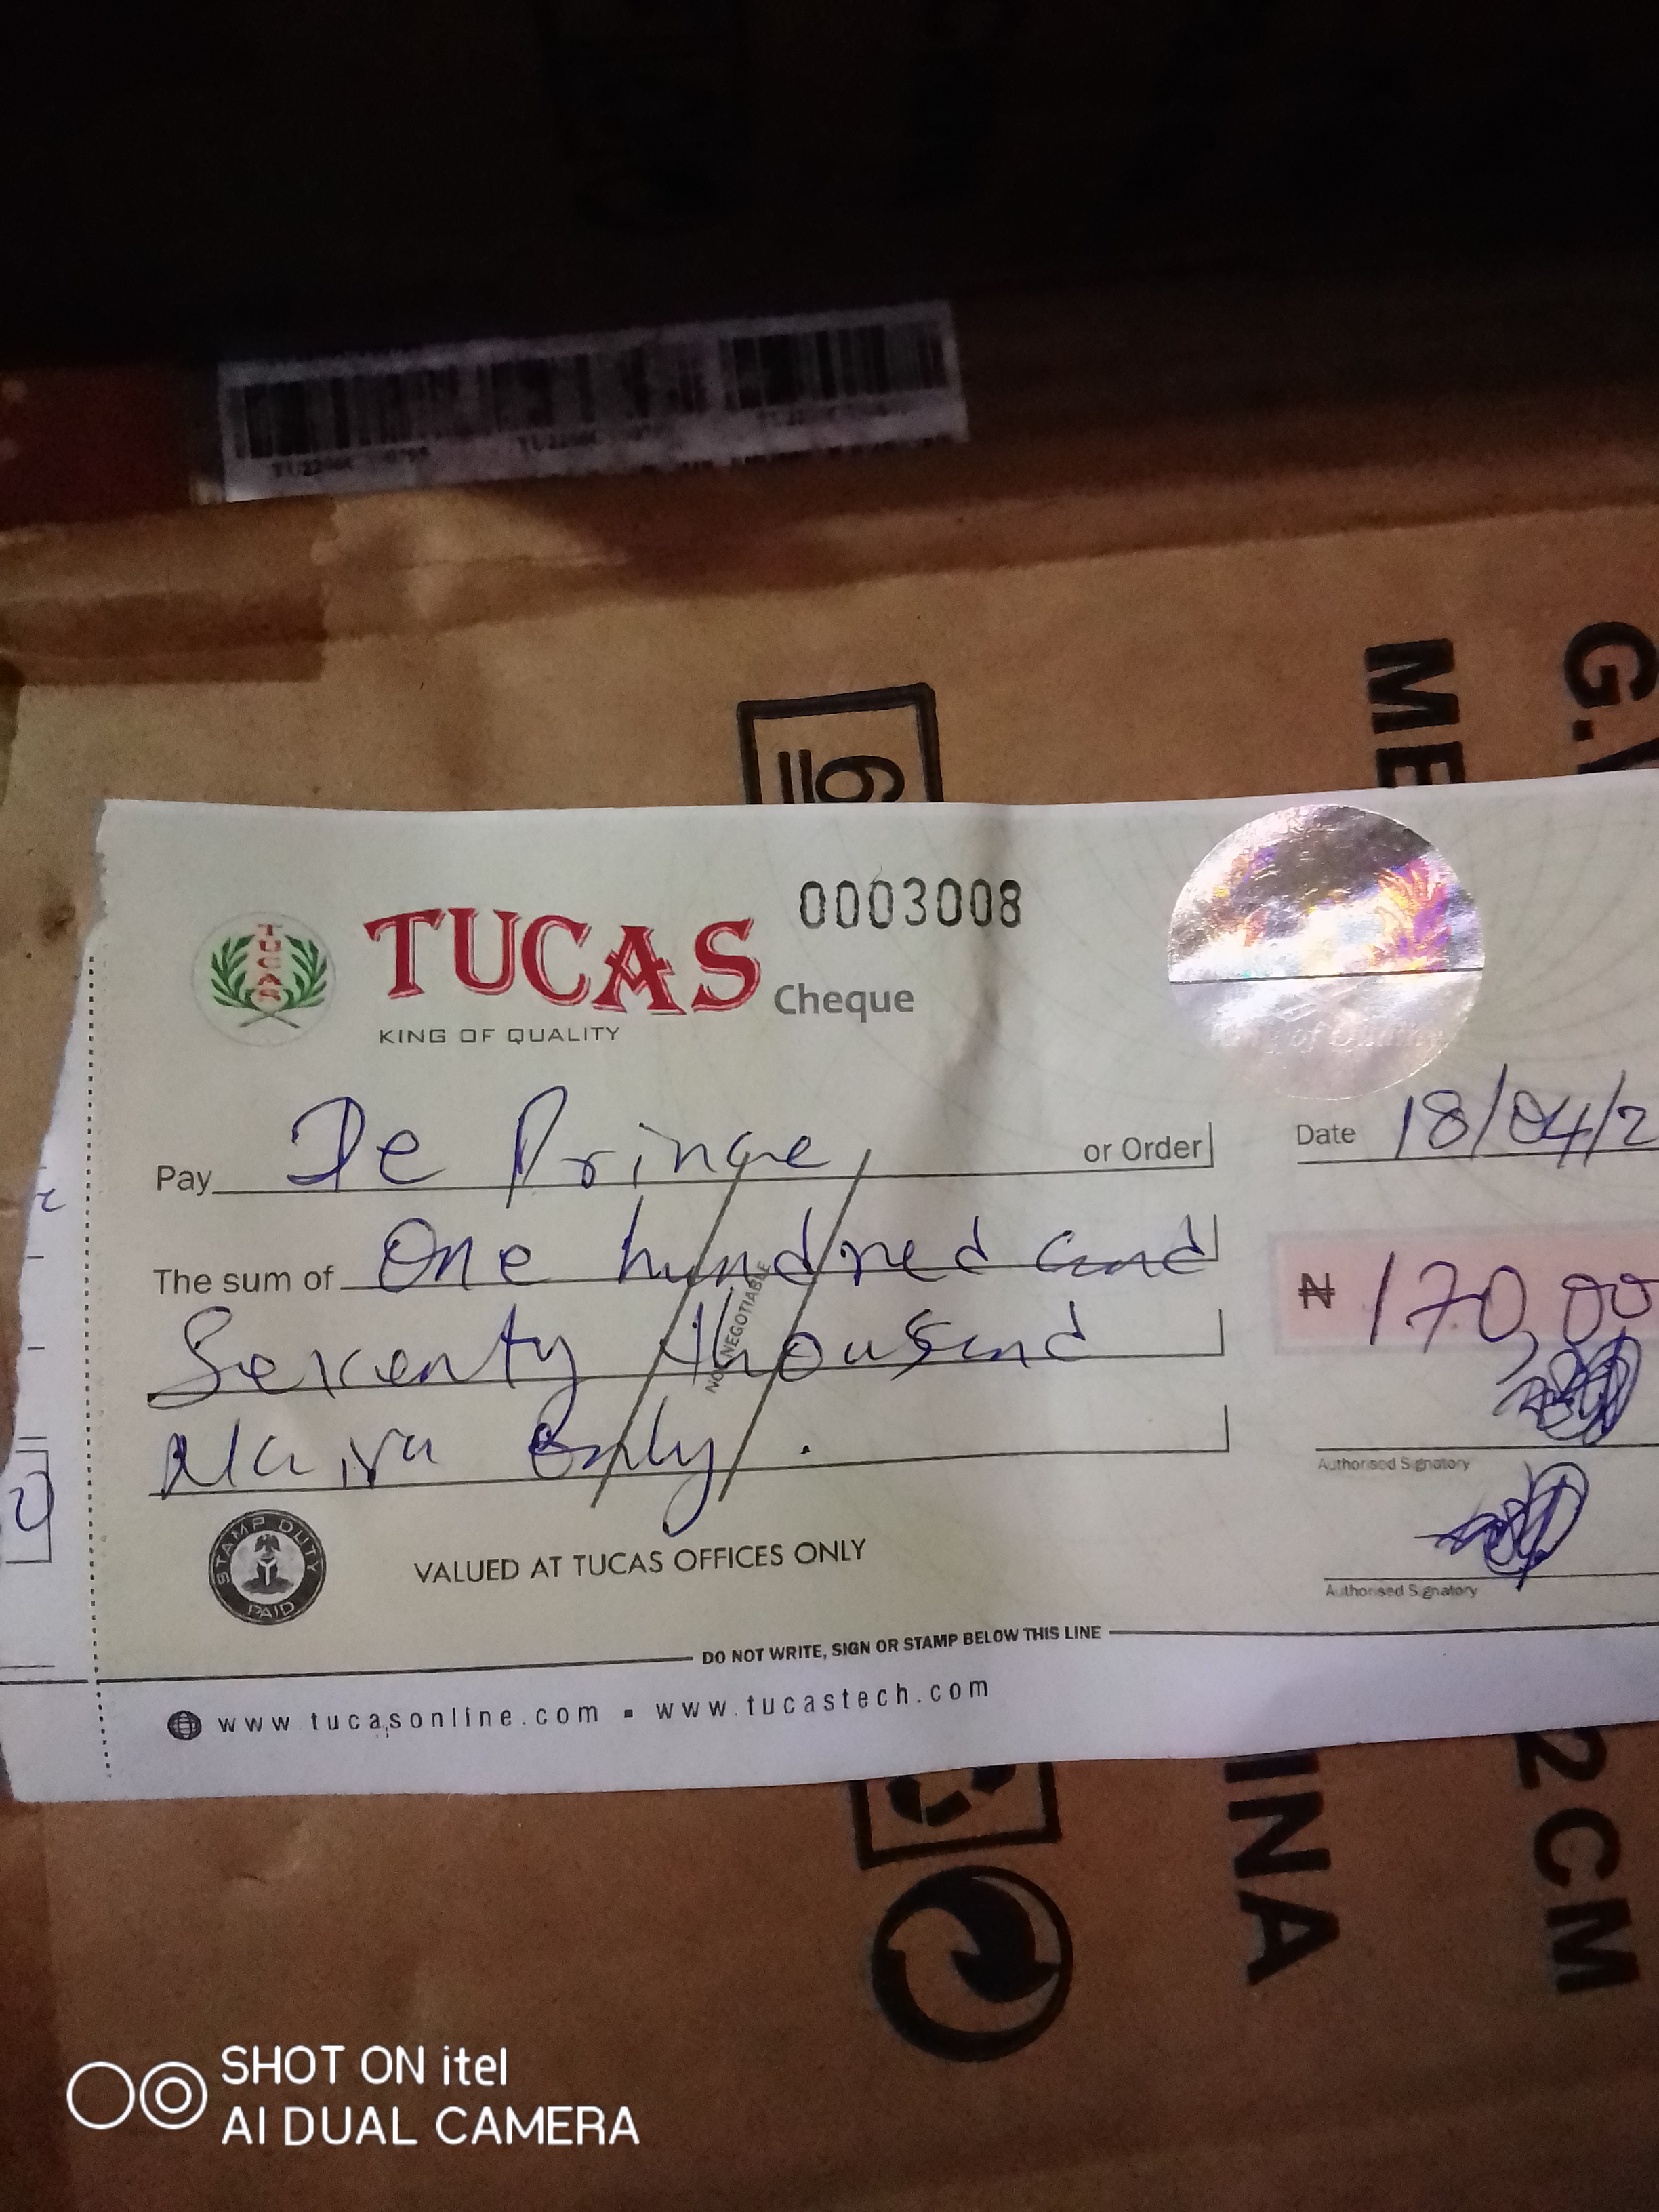 G.
ME
6
0003008
TUCAS
TUCAS
Cheque
KING OF QUALITY
Pay De Prince or Order
Date 18/04/2
The sum of One hundred and
₦ 170,00
Seventy thousand
NOT NEGOTIABLE
Naira only.
Authorised Signatory
Authorised Signatory
STAMP DUTY PAID
VALUED AT TUCAS OFFICES ONLY
DO NOT WRITE, SIGN OR STAMP BELOW THIS LINE
www.tucasonline.com ▪ www.tucastech.com
INA
2CM
SHOT ON itel
AI DUAL CAMERA